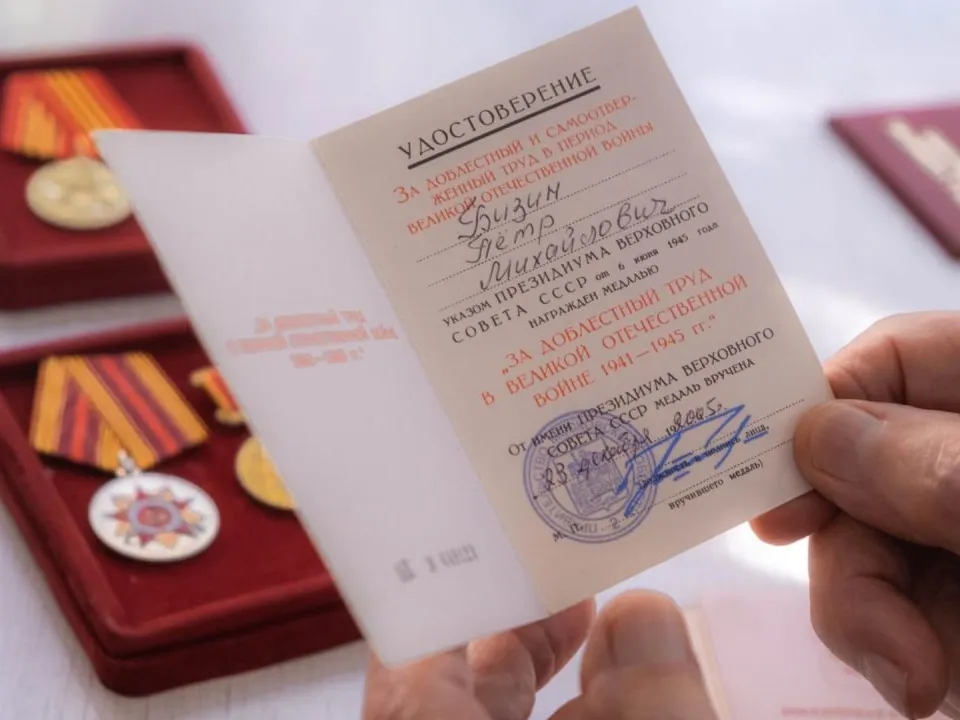 УДОСТОВЕРЕНИЕ
ЗА ДОБЛЕСТНЫЙ И САМООТВЕР-
ЖЕННЫЙ ТРУД В ПЕРИОД
ВЕЛИКОЙ ОТЕЧЕСТВЕННОЙ ВОЙНЫ
Визин
Пётр
Михайлович
УКАЗОМ ПРЕЗИДИУМА ВЕРХОВНОГО
СОВЕТА СССР от 6 июня 1945 года
НАГРАЖДЕН МЕДАЛЬЮ
„ЗА ДОБЛЕСТНЫЙ ТРУД
В ВЕЛИКОЙ ОТЕЧЕСТВЕННОЙ
ВОЙНЕ 1941—1945 гг.“
От ИМЕНИ ПРЕЗИДИУМА ВЕРХОВНОГО
СОВЕТА СССР МЕДАЛЬ ВРУЧЕНА
23 декабря
подпись лица,
вручившего медаль)
М. П.